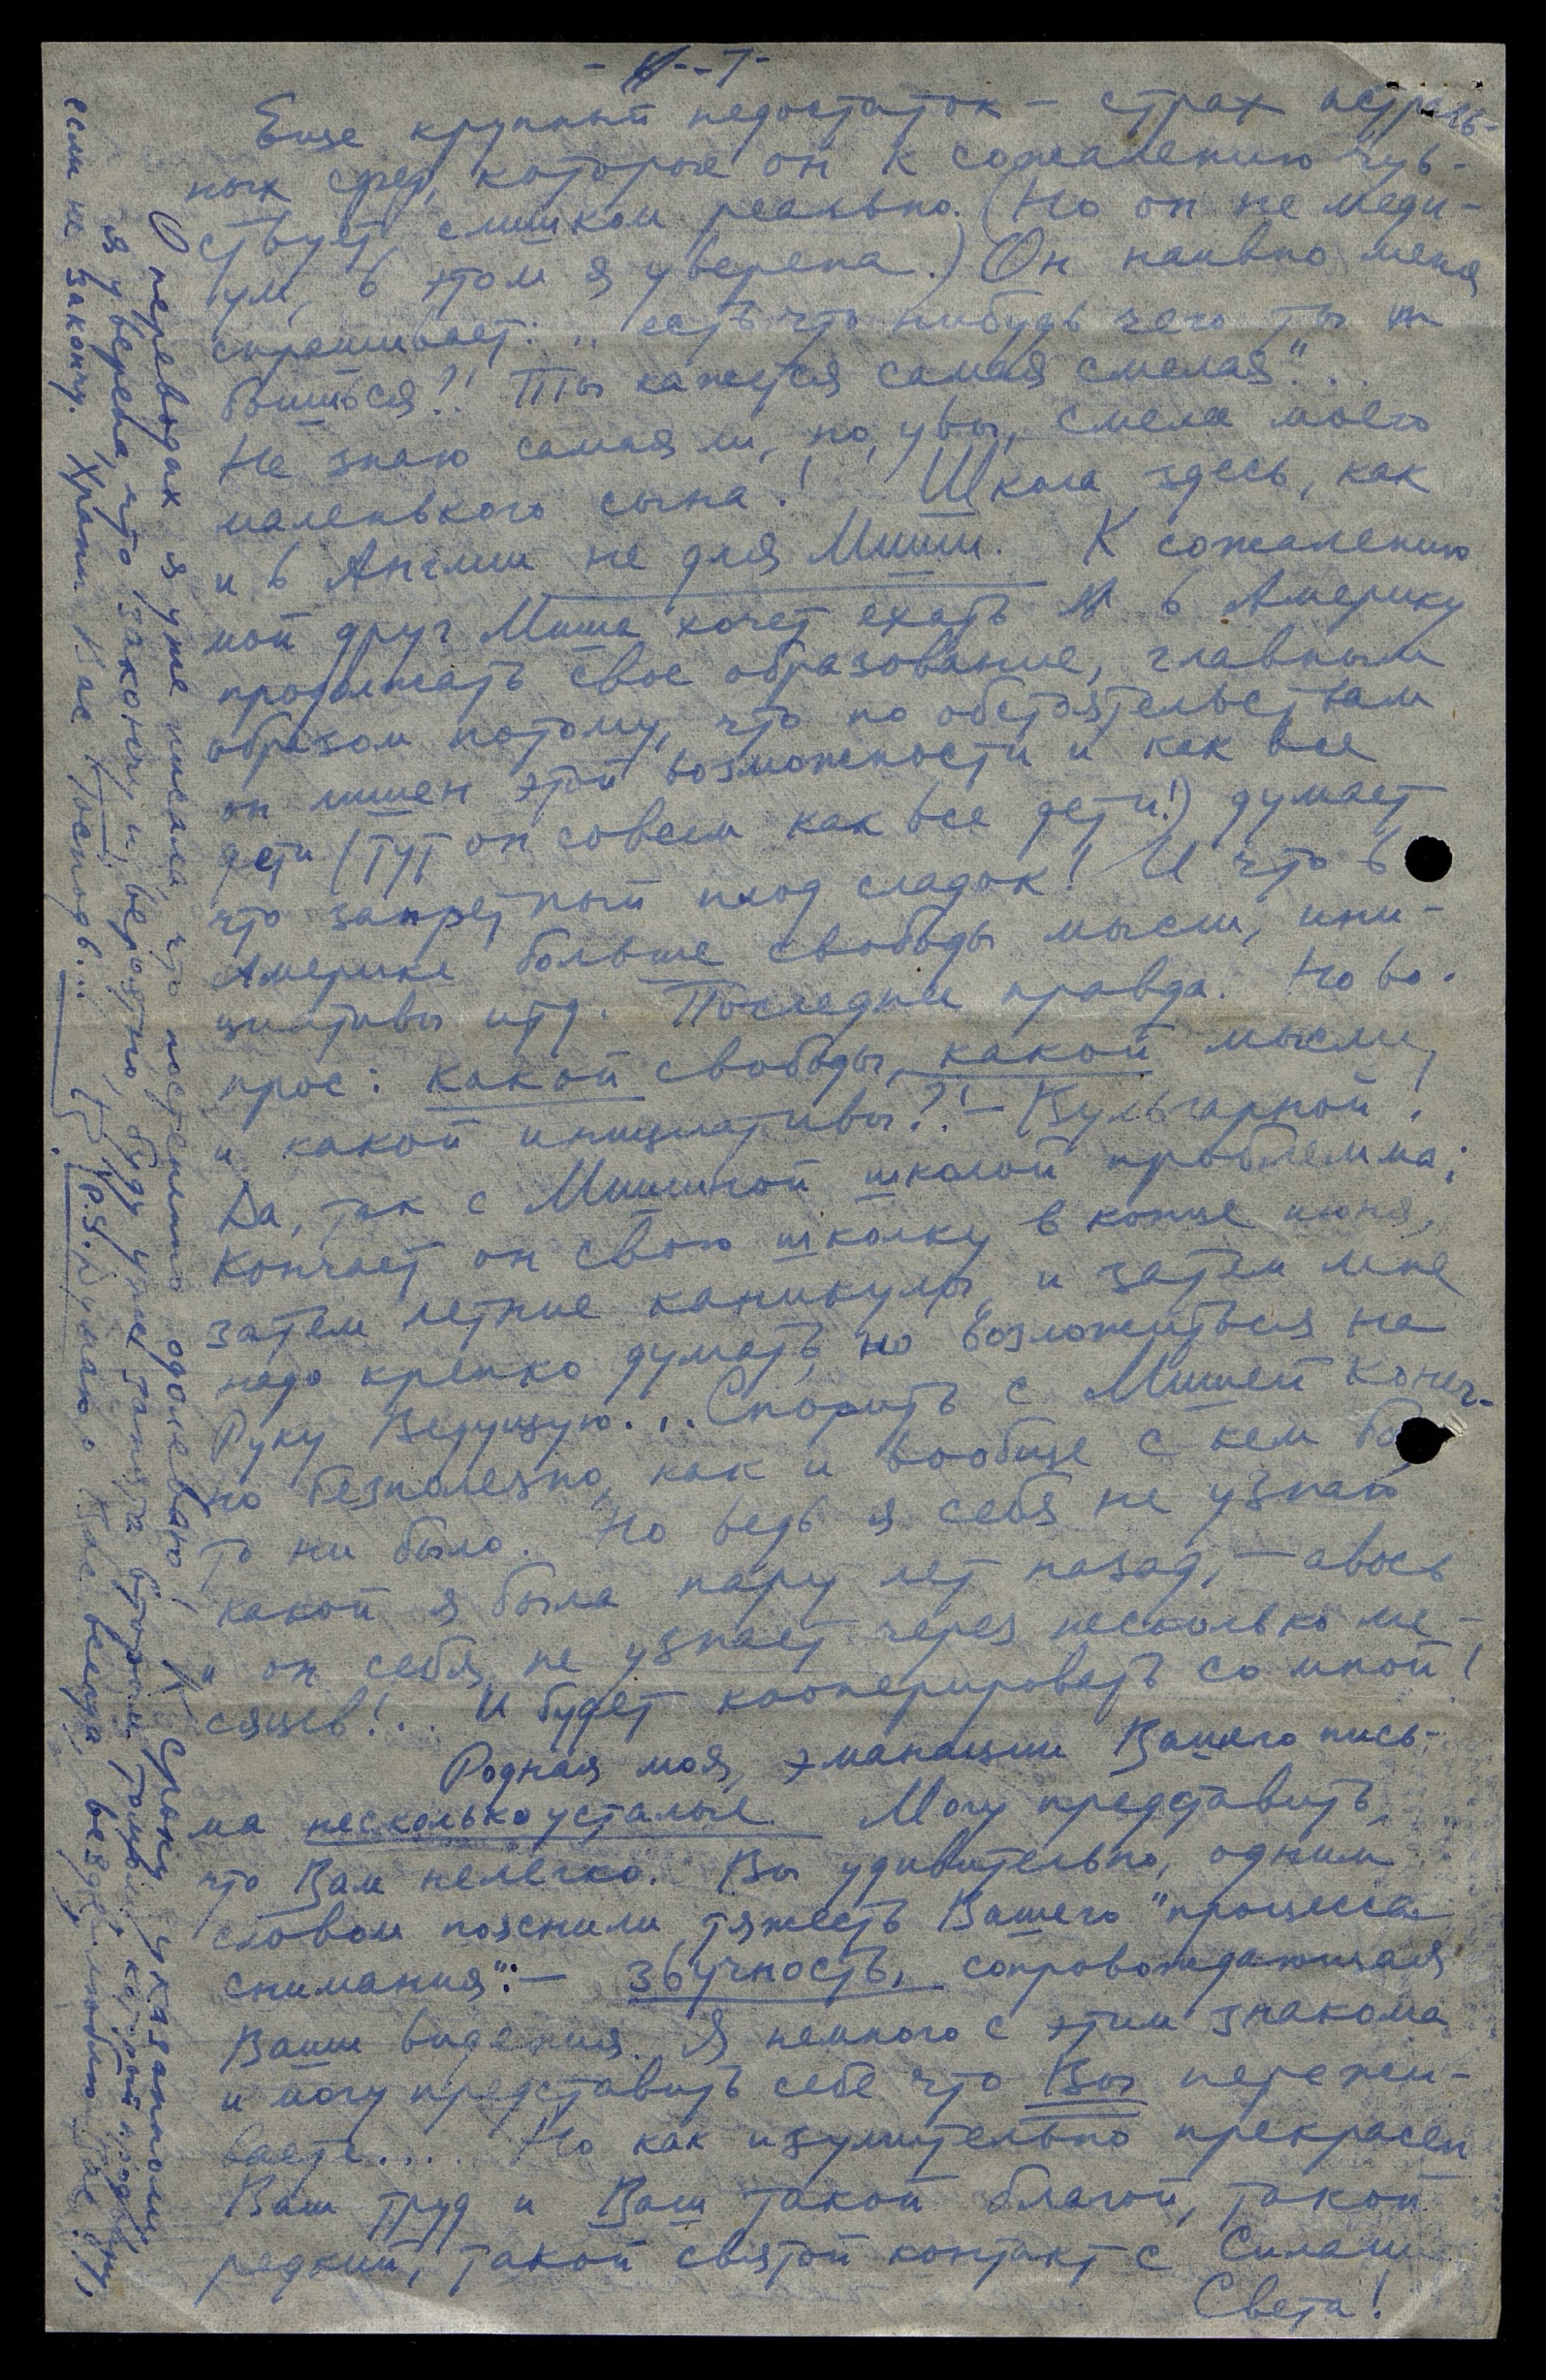 -7-
Еще крупный недостаток – страх астраль-
ных сфер, которые он к сожалению чув-
ствует слишком реально. (Но он не меди-
ум, в этом я уверена.) Он наивно меня
спрашивает: „есть что нибудь чего ты
боишься?! Ты кажется самая смелая"...
Не знаю самая ли, но, увы, смелее моего
маленького сына! Школа здесь, как
и в Англии не для Миши. К сожалению
мой друг Миша хочет ехать в Америку
продолжать свое образование, главным
образом потому, что по обстоятельствам
он лишен этой возможности и как все
дети (тут он совсем как все дети!) думает
что запретный плод сладок! И что в
Америке больше свободы мысли, ини-
циативы итд. Последнее правда. Но во-
прос: какой свободы, какой мысли,
и какой инициативы?! – Вульгарной!
Да, так с Мишиной школой проблемма;
Кончает он свою школку в конце июня,
затем летние каникулы, и затем мне
надо крепко думать, но возложиться на
Руку Ведущую... Спорить с Мишей конеч-
но безполезно, как и вообще с кем бы
то ни было. Но ведь я себя не узнаю
какой я была пару лет назад, – авось
и он себя не узнает через несколько ме-
сяцев!... И будет кооперировать со мной!
Родная моя, эманации Вашего пись-
ма несколько усталые. Могу представить,
что Вам нелегко. Вы удивительно, одним
словом пояснили тяжесть Вашего "процесса
снимания": – звучность, сопровождающая
Ваши видения. Я немного с этим знакома
и могу представить себе что Вы пережи-
ваете.... Но как изумительно прекрасен
Ваш труд и Ваш такой благой, такой
редкий, такой святой контакт с Силами
Света!
О переводах я уже писала, что постепенно одолеваю, К сроку указанному,
я уверена, что закончу и, вероятно, буду уже занята второй
если не закончу. Храни Вас Господь... P.S. Думаю о Вас всегда, везде, люблю Вас